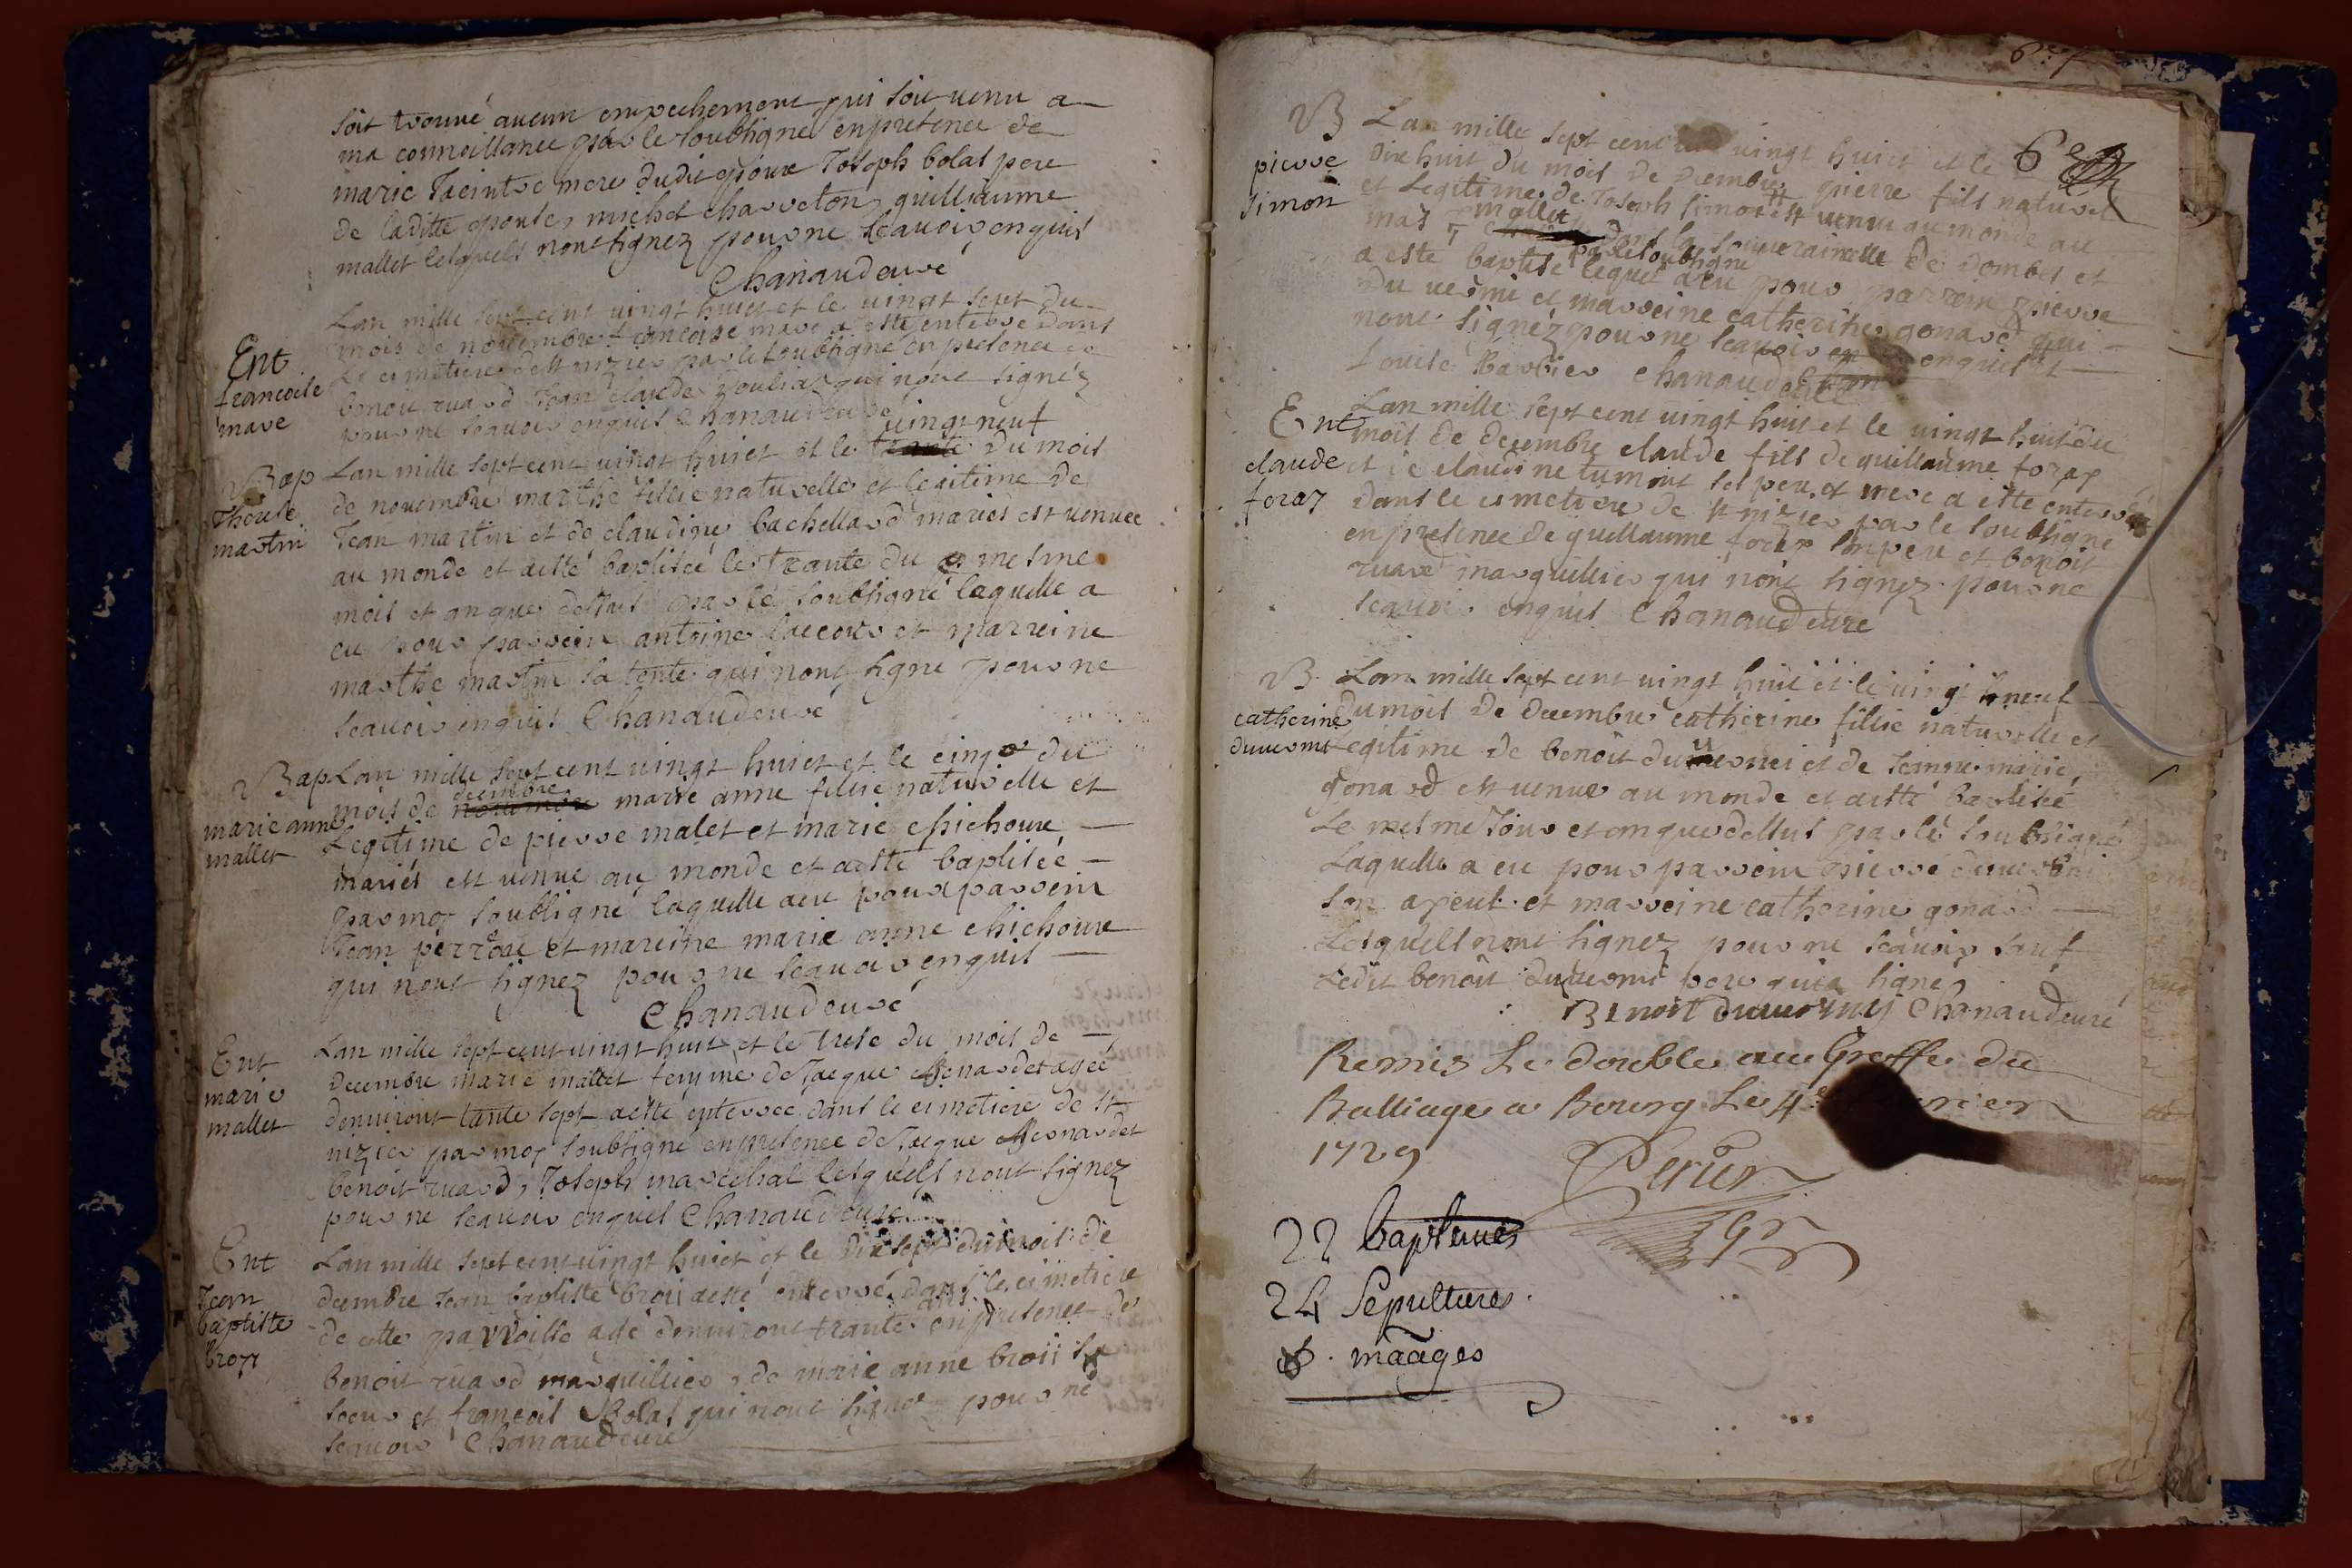 soit trouvé aucun empechement qui soit venu a
ma connoissance par le soubsigné en presence de
marie Jacintre mere dudit epoux Joseph bolas pere
de laditte epouse, michel charveton, guilliaume
mallet lesquels nont signez pour ne scavoir enquis
Chanaud curé
Ent
francoise
mare
Lan mille sept cent vingt huict et le vingt sept du
mois de novembre francoise mare a esté enterré dans
le cimetiere de st nizier par le soubsigné en presence de
benoit ruard Jean claude qui nont signéz
pour ne scavoir enquis Chanaud curé
vingt neuf
Bap
martin
Lan mille sept cent vingt huict et le trante du mois
de novembre marthe fillie naturelle et legitime de
Jean martin et de claudine bachellard mariés est venuee
au monde et aesté baptisée le trante du mesme
mois et an que dessus par le soubsigné laquelle a
eu pour parrein antoine et marreine
marthe martin sa tente qui nont signe pour ne
scavoir enquis Chanaud curé
Bap
marie anne
mallet
Lan mille sept cent vingt huict et le cinq du
decembre
mois de novembre marie anne fillie naturelle et
Legitime de pierre malet et marie chichoure
mariés est venue au monde et aesté baptiseé
par moy soubsigné laquelle aeu pour parrein
Jean et mareine marie anne chichoure
qui nont signez pour ne scavoir enquis
Chanaud curé
Ent
marie
mallet
Lan mille sept cent vingt huit et le trese du mois de
decembre marie mallet femme de Jacque Bernardet agée
denviront tante sept aesté enterreé dans le cimetiere de st
nizier par moy soubsigné en presence de Jacque Bernardet
benoit ruard, Joseph marechal lesquels nont signez
pour ne scavoir enquis Chanaud curé
Ent
Jean
baptiste
broyi
Lan mille sept cent vingt huict et le dix sept du mois de
decembre Jean baptiste broii aesté enterré dans le cimetiere
de cette parroisse agé denviront trante ans en presence de
benoit ruard marquillier, de marie anne broii sa
soeur et francois Bolas qui nont signé pour ne
scavoir Chanaud curé
6e
B
pierre
simon
Lan mille sept cent vingt huict et le
dix huit du mois de decembre pierre fils naturel
et Legitime de Joseph simon est venu au monde au
mas mallet dans la souverainette de dombes et
par le soubsigné
a esté baptisé lequel aeu pour parrein pierre
du verni et marreine catherine gonard qui
nont signéz pour ne scavoir enquis
Louise Barbier Chanaud curé
Ent
claude
foray
Lan mille sept cent vingt huit et le vingt huit du
mois de decembre claude fils de guillaume foray
et de claudine tumont ses pere et mere a esté enterré
dans le cimetiere de st nizier par le soubsigné
en presence de guillaume foray son pere et benoit
ruard marquillier qui nont signez pour ne
scavoir enquis Chanaud curé
B
catherine
duverni
Lan mille sept cent vingt huit et le vingt neuf
du mois de decembre catherine fillie naturelle et
Legitime de benoit duverni et de Jeanne marie
gonard est venue au monde et aesté baptiseé
Le mesme Jour et an que dessus par le soubsigné
Laquelle a eu pour parrein pierre duverni
son ayeul et marreine catherine gonard
Lesquels nont signez pour ne scavoir sauf
Ledit benoit duverni pere qui a signe
Benoit duverny Chanaud curé
Remis Le double au Greffe du
Balliage a Bourg Le 4e
1729
Perier
22 baptemes
24 Sepultures
8. mãages